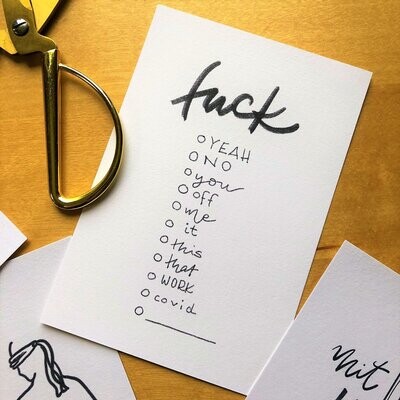 fuck
YEAH
NO
you
off
me
it
this
that
WORK
covid
mit